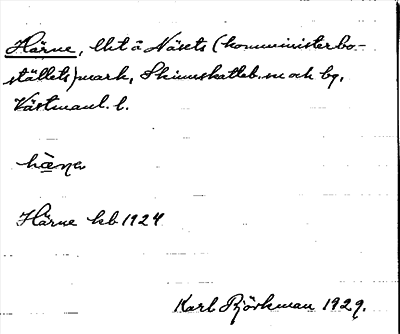 Härne, lht å Näsets (komministerbo-
ställets) mark, Skinnskatteb. sn och bg,
Västmanl. l.
Härne kb 1924
Karl Björkman 1929.